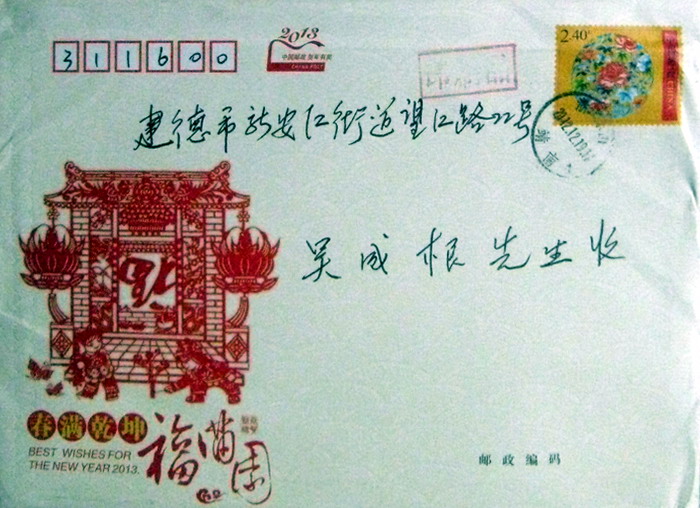 311600
2013
中国邮政 贺年有奖
CHINA POST
2.40
2012.12.19
建德市新安江街道望江路22号
吴成根先生收
福
春满乾坤
福满园
BEST WISHES FOR
THE NEW YEAR 2013.
邮政编码